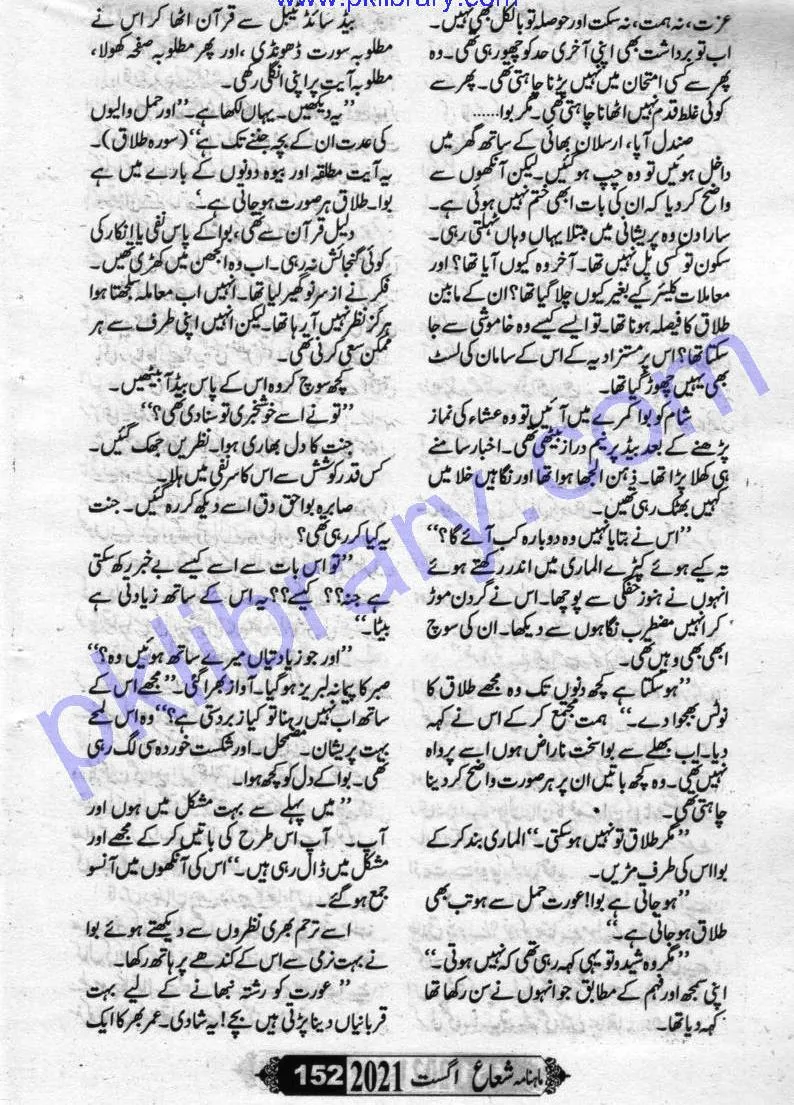 www.pklibrary.com
عزت، نہ ہمت، نہ سکت اور حوصلہ تو بالکل بھی نہیں۔
اب تو برداشت بھی اپنی آخری حد کو چھو رہی تھی۔ وہ
پھر سے کسی امتحان میں نہیں پڑنا چاہتی تھی۔ پھر سے
کوئی غلط قدم نہیں اٹھانا چاہتی تھی۔ مگر بوا......
صندل آپا، ارسلان بھائی کے ساتھ گھر میں
داخل ہوئیں تو وہ چپ ہو گئیں۔ لیکن آنکھوں سے
واضح کر دیا کہ ان کی بات ابھی ختم نہیں ہوئی ہے۔
سارا دن وہ پریشانی میں مبتلا یہاں وہاں ٹہلتی رہی۔
سکون تو کسی پل نہیں تھا۔ آخر وہ کیوں آیا تھا؟ اور
معاملات کلیئر کیے بغیر کیوں چلا گیا تھا؟ ان کے مابین
طلاق کا فیصلہ ہونا تھا۔ تو ایسے کیسے وہ خاموشی سے جا
سکتا تھا؟ اس پر مستزاد یہ کے اس کے سامان کی لسٹ
بھی یہیں چھوڑ گیا تھا۔
شام کو بوا کمرے میں آئیں تو وہ عشاء کی نماز
پڑھنے کے بعد بیڈ پر نیم دراز بیٹھی تھی۔ اخبار سامنے
ہی کھلا پڑا تھا۔ ذہن الجھا ہوا تھا اور نگاہیں خلا میں
کہیں بھٹک رہی تھیں۔
”اس نے بتایا نہیں وہ دوبارہ کب آئے گا؟“
تہ کیے ہوئے کپڑے الماری میں اندر رکھتے ہوئے
انہوں نے ہنوز خفگی سے پوچھا۔ اس نے گردن موڑ
کر انہیں مضطرب نگاہوں سے دیکھا۔ ان کی سوچ
ابھی بھی وہیں تھی۔
”ہو سکتا ہے کچھ دنوں تک وہ مجھے طلاق کا
نوٹس بھجوا دے۔“ ہمت مجتمع کر کے اس نے کہہ
دیا۔ اب بھلے سے بوا سخت ناراض ہوں اسے پرواہ
نہیں تھی۔ وہ کچھ باتیں ان پر ہر صورت واضح کر دینا
چاہتی تھی۔
”مگر طلاق تو نہیں ہو سکتی۔“ الماری بند کر کے
بوا اس کی طرف مڑیں۔
”ہو جاتی ہے بوا! عورت حمل سے ہو تب بھی
طلاق ہو جاتی ہے۔“
”مگر وہ شیدو تو یہی کہہ رہی تھی کہ نہیں ہوتی۔“
اپنی سمجھ اور فہم کے مطابق جو انہوں نے سن رکھا تھا
کہہ دیا تھا۔
بیڈ سائڈ ٹیبل سے قرآن اٹھا کر اس نے
مطلوبہ سورت ڈھونڈی، اور پھر مطلوبہ صفحہ کھولا،
مطلوبہ آیت پر اپنی انگلی رکھی۔
”یہ دیکھیں۔ یہاں لکھا ہے۔ ”اور حمل والیوں
کی عدت ان کے بچہ جننے تک ہے“ (سورہ طلاق)۔
یہ آیت مطلقہ اور بیوہ دونوں کے بارے میں ہے
بوا۔ طلاق ہر صورت ہو جاتی ہے۔“
دلیل قرآن سے تھی، بوا کے پاس نفی یا انکار کی
کوئی گنجائش نہ رہی۔ اب وہ الجھن میں کھڑی تھیں۔
فکر نے از سر نو گھیر لیا تھا۔ انہیں اب معاملہ سلجھتا ہوا
ہر گز نظر نہیں آ رہا تھا۔ لیکن انہیں اپنی طرف سے ہر
ممکن سعی کرنی تھی۔
کچھ سوچ کر وہ اس کے پاس بیڈ آ بیٹھیں۔
”تو نے اسے خوشخبری تو سنا دی تھی؟“
جنت کا دل بھاری ہوا۔ نظریں جھک گئیں۔
کس قدر کوشش سے اس کا سر نفی میں ہلا۔
صابرہ بوا حق دق اسے دیکھ کر رہ گئیں۔ جنت
یہ کیا کر رہی تھی؟
”تو اس بات سے اسے کیسے بے خبر رکھ سکتی
ہے جنہ؟؟ کیسے؟؟ یہ اس کے ساتھ زیادتی ہے
بیٹا۔“
”اور جو زیادتیاں میرے ساتھ ہوئیں وہ؟“
صبر کا پیمانہ لبریز ہو گیا۔ آواز بھرا گئی۔ ”مجھے اس کے
ساتھ اب نہیں رہنا تو کیا زبردستی ہے؟“ وہ اس لمحے
بہت پریشان۔ مضمحل۔ اور شکست خوردہ سی لگ رہی
تھی۔ بوا کے دل کو کچھ ہوا۔
”میں پہلے سے بہت مشکل میں ہوں اور
آپ۔ آپ اس طرح کی باتیں کر کے مجھے اور
مشکل میں ڈال رہی ہیں۔“ اس کی آنکھوں میں آنسو
جمع ہو گئے۔
اسے ترحم بھری نظروں سے دیکھتے ہوئے بوا
نے بہت نرمی سے اس کے کندھے پر ہاتھ رکھا۔
”عورت کو رشتہ نبھانے کے لیے بہت
قربانیاں دینا پڑتی ہیں بچے! یہ شادی۔ عمر بھر کا ایک
pklibrary.com
ماہنامہ شعاع اگست 2021 152